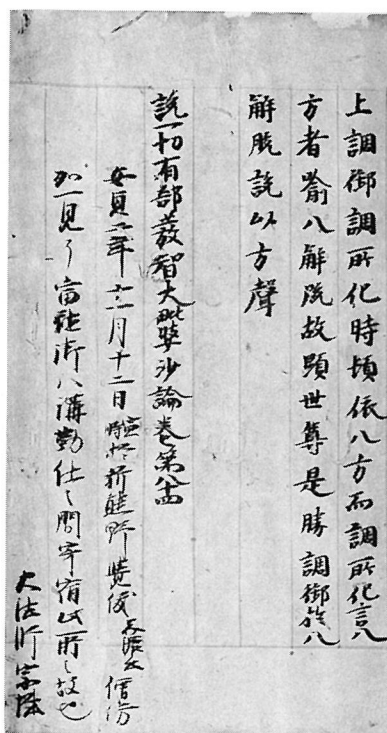 上調御調所化時頃依八方而調所化言八
方者喻八解脫故顯世尊是勝調御從八
解脫說以方聲
說一切有部發智大毗婆沙論卷第八十四
安貞二年十二月十二日 於新熊野 僧房
加一見了當社御八講勤仕之間寄宿此所之故也
大法師宗